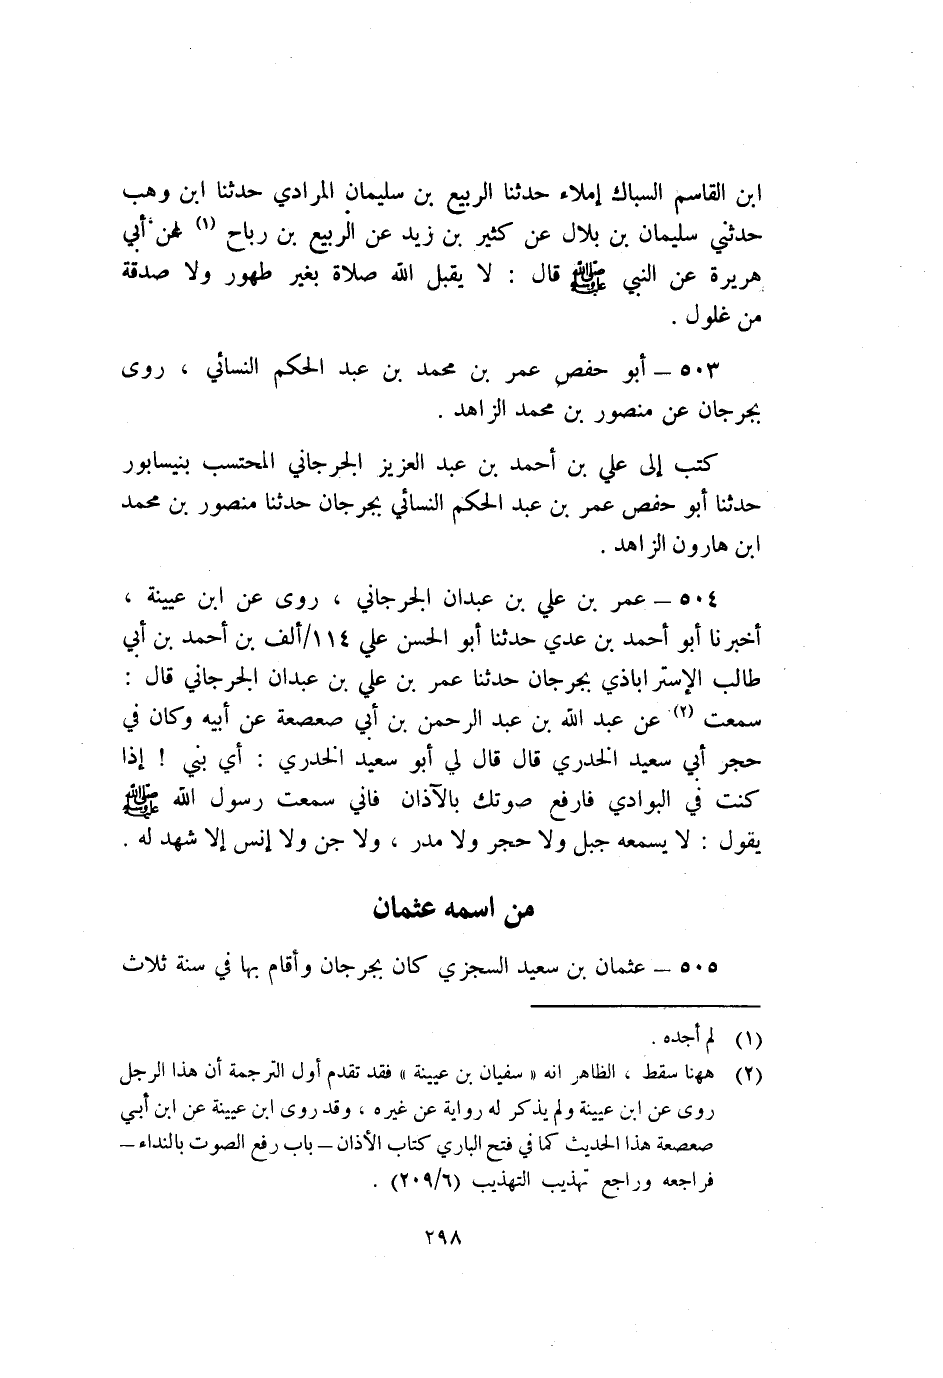 ابن القاسم السباك إملاء حدثنا الربيع بن سليمان المرادي حدثنا ابن وهب
حدثني سليمان بن بلال عن كثير بن زيد عن الربيع بن رباح (١) عن أبي
هريرة عن النبي ﷺ قال : لا يقبل الله صلاة بغير طهور ولا صدقة
من غلول .
٥٠٣ ــ أبو حفص عمر بن محمد بن عبد الحكم النسائي ، روى
بجرجان عن منصور بن محمد الزاهد .
كتب إلى علي بن أحمد بن عبد العزيز الجرجاني المحتسب بنيسابور
حدثنا أبو حفص عمر بن عبد الحكم النسائي بجرجان حدثنا منصور بن محمد
ابن هارون الزاهد .
٥٠٤ ــ عمر بن علي بن عبدان الجرجاني ، روى عن ابن عيينة ،
أخبرنا أبو أحمد بن عدي حدثنا أبو الحسن علي ١١٤/ألف بن أحمد بن أبي
طالب الإستراباذي بجرجان حدثنا عمر بن علي بن عبدان الجرجاني قال :
سمعت (٢) عن عبد الله بن عبد الرحمن بن أبي صعصعة عن أبيه وكان في
حجر أبي سعيد الخدري قال قال لي أبو سعيد الخدري : أي بني ! إذا
كنت في البوادي فارفع صوتك بالآذان فاني سمعت رسول الله ﷺ
يقول : لا يسمعه جبل ولا حجر ولا مدر ، ولا جن ولا إنس إلا شهد له .
من اسمه عثمان
٥٠٥ ــ عثمان بن سعيد السجزي كان بجرجان وأقام بها في سنة ثلاث
(١) لم أجده .
(٢) ههنا سقط ، الظاهر انه « سفيان بن عيينة » فقد تقدم أول الترجمة أن هذا الرجل
روى عن ابن عيينة ولم يذكر له رواية عن غيره ، وقد روى ابن عيينة عن ابن أبي
صعصعة هذا الحديث كما في فتح الباري كتاب الأذان ــ باب رفع الصوت بالنداء ــ
فراجعه وراجع تهذيب التهذيب (٢٠٩/٦) .
٢٩٨